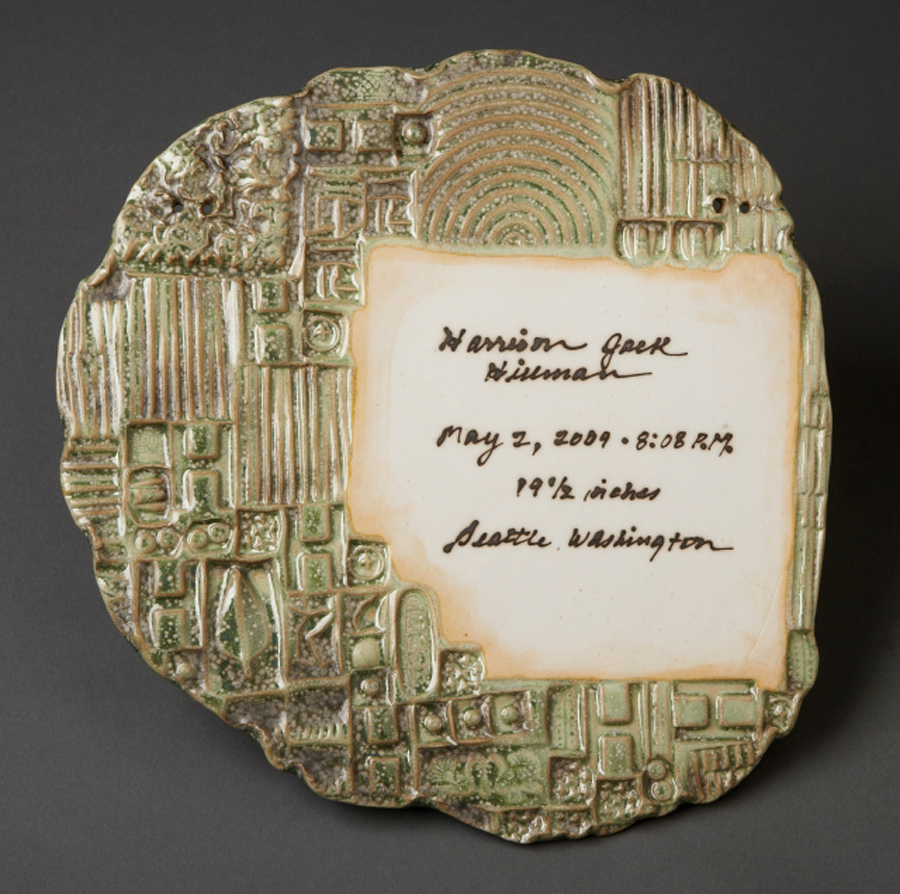 Harrison Jack
Hillman
May 2, 2009 · 8:08 P.M.
19 1/2 inches
Seattle, Washington